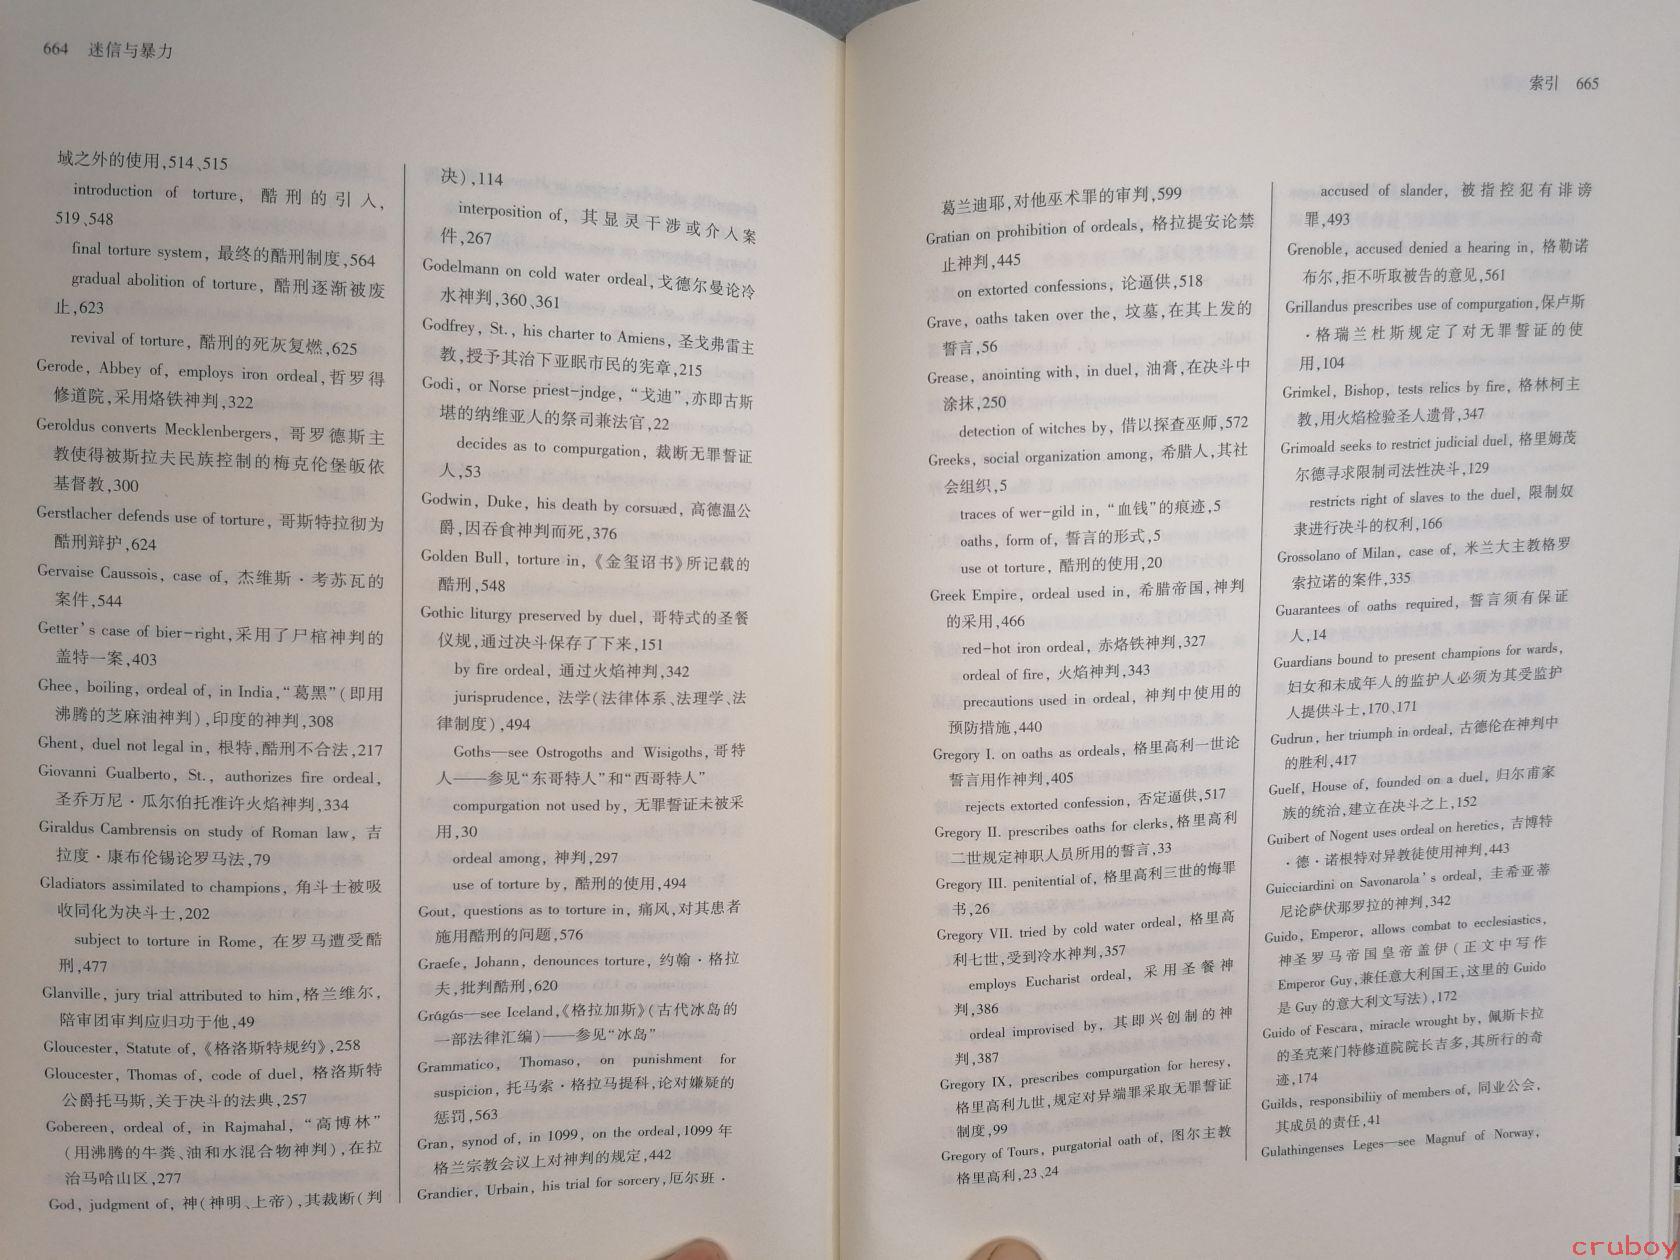 664 迷信与暴力
域之外的使用,514、515
introduction of torture, 酷刑的引入,
519、548
final torture system, 最终的酷刑制度,564
gradual abolition of torture, 酷刑逐渐被废
止,623
revival of torture, 酷刑的死灰复燃,625
Gerode, Abbey of, employs iron ordeal, 哲罗得
修道院,采用烙铁神判,322
Geroldus converts Mecklenbergers, 哥罗德斯主
教使得被斯拉夫民族控制的梅克伦堡皈依
基督教,300
Gerstlacher defends use of torture, 哥斯特拉彻为
酷刑辩护,624
Gervaise Caussois, case of, 杰维斯·考苏瓦的
案件,544
Getter's case of bier-right,采用了尸棺神判的
盖特一案,403
Ghee, boiling, ordeal of, in India,“葛黑”(即用
沸腾的芝麻油神判),印度的神判,308
Ghent, duel not legal in, 根特,酷刑不合法,217
Giovanni Gualberto, St., authorizes fire ordeal,
圣乔万尼·瓜尔伯托准许火焰神判,334
Giraldus Cambrensis on study of Roman law, 吉
拉度·康布伦锡论罗马法,79
Gladiators assimilated to champions, 角斗士被吸
收同化为决斗士,202
subject to torture in Rome, 在罗马遭受酷
刑,477
Glanville, jury trial attributed to him,格兰维尔,
陪审团审判应归功于他,49
Gloucester, Statute of,《格洛斯特规约》,258
Gloucester, Thomas of, code of duel, 格洛斯特
公爵托马斯,关于决斗的法典,257
Gobereen, ordeal of, in Rajmahal, “高博林”
(用沸腾的牛粪、油和水混合物神判),在拉
治马哈山区,277
God, judgment of, 神(神明、上帝),其裁断(判
决),114
interposition of, 其显灵干涉或介入案
件,267
Godelmann on cold water ordeal,戈德尔曼论冷
水神判,360、361
Godfrey, St., his charter to Amiens, 圣戈弗雷主
教,授予其治下亚眠市民的宪章,215
Godi, or Norse priest-jndge, “戈迪”,亦即古斯
堪的纳维亚人的祭司兼法官,22
decides as to compurgation, 裁断无罪誓证
人,53
Godwin, Duke, his death by corsuæd, 高德温公
爵,因吞食神判而死,376
Golden Bull, torture in,《金玺诏书》所记载的
酷刑,548
Gothic liturgy preserved by duel, 哥特式的圣餐
仪规,通过决斗保存了下来,151
by fire ordeal, 通过火焰神判,342
jurisprudence, 法学(法律体系、法理学、法
律制度),494
Goths—see Ostrogoths and Wisigoths,哥特
人——参见“东哥特人”和“西哥特人”
compurgation not used by, 无罪誓证未被采
用,30
ordeal among, 神判,297
use of torture by, 酷刑的使用,494
Gout, questions as to torture in, 痛风,对其患者
施用酷刑的问题,576
Graefe, Johann, denounces torture, 约翰·格拉
夫,批判酷刑,620
Grágás—see Iceland,《格拉加斯》(古代冰岛的
一部法律汇编)——参见“冰岛”
Grammatico, Thomaso, on punishment for
suspicion, 托马索·格拉马提科,论对嫌疑的
惩罚,563
Gran, synod of, in 1099, on the ordeal,1099 年
格兰宗教会议上对神判的规定,442
Grandier, Urbain, his trial for sorcery,厄尔班·
索引 665
葛兰迪耶,对他巫术罪的审判,599
Gratian on prohibition of ordeals, 格拉提安论禁
止神判,445
on extorted confessions, 论逼供,518
Grave, oaths taken over the, 坟墓,在其上发的
誓言,56
Grease, anointing with, in duel, 油膏,在决斗中
涂抹,250
detection of witches by, 借以探查巫师,572
Greeks, social organization among, 希腊人,其社
会组织,5
traces of wer-gild in, “血钱”的痕迹,5
oaths, form of, 誓言的形式,5
use ot torture, 酷刑的使用,20
Greek Empire, ordeal used in, 希腊帝国,神判
的采用,466
red-hot iron ordeal, 赤烙铁神判,327
ordeal of fire, 火焰神判,343
precautions used in ordeal, 神判中使用的
预防措施,440
Gregory I. on oaths as ordeals, 格里高利一世论
誓言用作神判,405
rejects extorted confession, 否定逼供,517
Gregory II. prescribes oaths for clerks,格里高利
二世规定神职人员所用的誓言,33
Gregory III. penitential of, 格里高利三世的悔罪
书,26
Gregory VII. tried by cold water ordeal, 格里高
利七世,受到冷水神判,357
employs Eucharist ordeal, 采用圣餐神
判,386
ordeal improvised by, 其即兴创制的神
判,387
Gregory IX, prescribes compurgation for heresy,
格里高利九世,规定对异端罪采取无罪誓证
制度,99
Gregory of Tours, purgatorial oath of, 图尔主教
格里高利,23、24
accused of slander, 被指控犯有诽谤
罪,493
Grenoble, accused denied a hearing in, 格勒诺
布尔,拒不听取被告的意见,561
Grillandus prescribes use of compurgation,保卢斯
·格瑞兰杜斯规定了对无罪誓证的使
用,104
Grimkel, Bishop, tests relics by fire, 格林柯主
教,用火焰检验圣人遗骨,347
Grimoald seeks to restrict judicial duel, 格里姆茂
尔德寻求限制司法性决斗,129
restricts right of slaves to the duel, 限制奴
隶进行决斗的权利,166
Grossolano of Milan, case of, 米兰大主教格罗
索拉诺的案件,335
Guarantees of oaths required, 誓言须有保证
人,14
Guardians bound to present champions for wards,
妇女和未成年人的监护人必须为其受监护
人提供斗士,170、171
Gudrun, her triumph in ordeal, 古德伦在神判中
的胜利,417
Guelf, House of, founded on a duel, 归尔甫家
族的统治,建立在决斗之上,152
Guibert of Nogent uses ordeal on heretics, 吉博特
·德·诺根特对异教徒使用神判,443
Guicciardini on Savonarola's ordeal, 圭希亚蒂
尼论萨伏那罗拉的神判,342
Guido, Emperor, allows combat to ecclesiastics,
神圣罗马帝国皇帝盖伊(正文中写作
Emperor Guy,兼任意大利国王,这里的 Guido
是 Guy 的意大利文写法),172
Guido of Fescara, miracle wrought by, 佩斯卡拉
的圣克莱门特修道院院长吉多,其所行的奇
迹,174
Guilds, responsibiliiy of members of, 同业公会,
其成员的责任,41
Gulathingenses Leges—see Magnuf of Norway,
cruboy